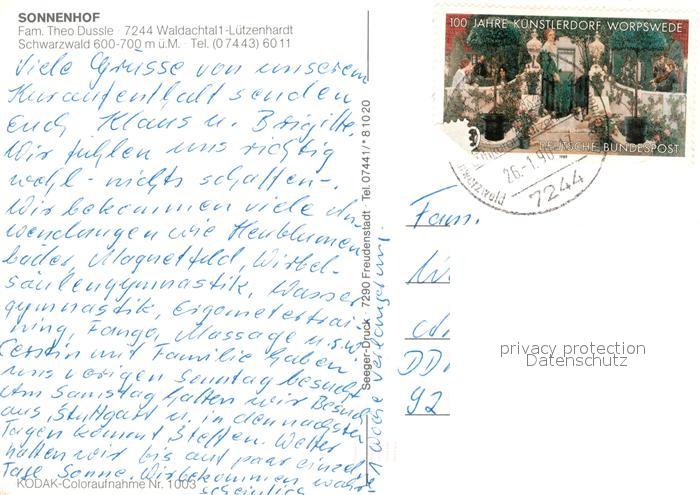 SONNENHOF
Fam. Theo Dussle · 7244 Waldachtal1-Lützenhardt
Schwarzwald 600-700 m ü.M. · Tel. (07443) 6011
Viele Grüsse von unserem
Kuraufenthalt senden
Euch Klaus u. Brigitte.
Wir fühlen uns richtig
wohl - nichts schaffen -.
Wir bekommen viele An
wendungen wie Heublumen
bäder, Magnetfeld, Wirbel-
säulengymnastik, Wasser
gymnastik, Ergometertrai-
ning, Fango, Massage u.s.w.
Cerstin mit Familie haben
uns vorigen Sonntag besucht
Am Samstag hatten wir Besuch
aus Stuttgart u. in den nächsten
Tagen kommt Steffen. Wetter
hatten wir bis auf paar einzel
Tage Sonne. Wir bekommen wahr
scheinlich
1 Woche Verlängerung.
KODAK-Coloraufnahme Nr. 1003
Seeger-Druck · 7290 Freudenstadt · Tel. 07441/* 8 10 20
100 JAHRE KÜNSTLERDORF WORPSWEDE
DEUTSCHE BUNDESPOST
26.-1.90
7244
Fam.
DD
92
privacy protection
Datenschutz